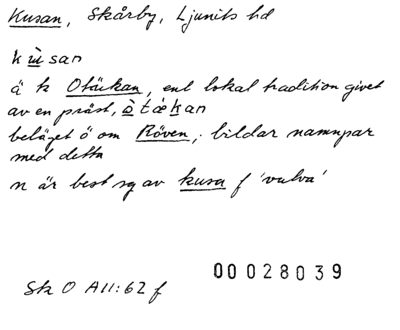 Kusan, Skårby, Ljunits hd
kùsan
ä k Otäckan, enl lokal tradition givet
av en präst, òtäkan
beläget ö om Röven, bildar namnpar
med detta
n är best sg av kusa f 'vulva'
00028039
Sk O A11:62 f